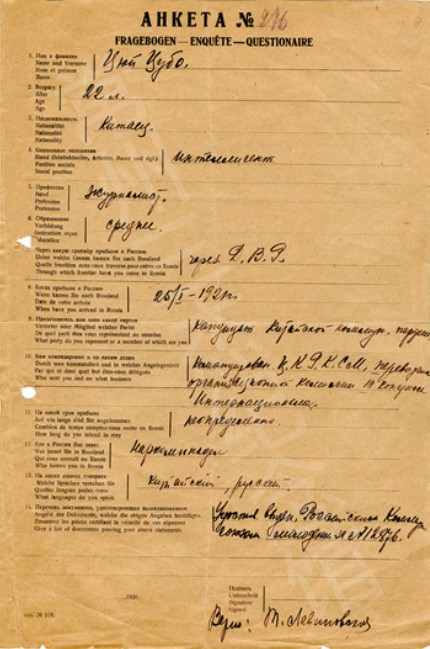 АНКЕТА № 276
FRAGEBOGEN — ENQUÊTE — QUESTIONAIRE
1. Имя и фамилия
Name und Vorname
Nom et prénom
Name
Цюй Цубо.
2. Возраст
Alter
Age
Age
22 л.
3. Национальность
Nationalität
Nationalité
Nationality
Китаец.
4. Социальное положение
Stand (Intellektueller, Arbeiter, Bauer und dgl.)
Position sociale
Social position
Интеллигент
5. Профессия
Beruf
Profession
Profession
Журналист.
6. Образование
Vorbildung
Instruction
Education
среднее.
7. Через какую границу прибыли в Россию
Ueber welche Grenze kamen Sie nach Russland
Quelle frontière avez-vous traversé pour entrer en Russie
Through which frontier have you come in Russia
через Д. В. Р.
8. Когда прибыли в Россию
Wann kamen Sie nach Russland
Date de votre arrivée
When have you arrived in Russia
25/I – 1921 г.
9. Представитель или член какой партии
Vertreter oder Mitglied welcher Partei
De quel parti êtes vous représentant ou membre
What party do you represent or a member of which are you
Кандидат Китайской коммун. партии
10. Кем командированы и по каким делам
Durch wen kommandiert und in welcher Angelegenheit
Par qui et dans quel but êtes-vous délégués
Who sent you and on what business
Командирован Ц. К. Р. К. С. М.,
организационной комиссии
Интернационала.
11. На какой срок прибыли
Auf wie lange sind Sie angekommen
Combien de temps comptez-vous rester en Russie
How long do you intend to stay
неопределенно.
12. Кто в России Вас знает
Wer kennt Sie in Russland
Qui vous connaît en Russie
Who knows you in Russia
Наркоминдел
13. На каких языках говорите
Welche Sprachen sprechen Sie
Quelles langues parlez-vous
What languages do you speak
Китайский, русский.
14. Перечень документов, удостоверяющих вышеизложенное
Angabe der Dokumente, welche die obigen Angaben bestätigen
Enumérez les pièces certifiant la véracité de vos réponses
Give a list of documents proving your above statements.
Российским Коммун.
союзом молодежи № 12976.
1920.
Подпись
Unterschrift
Signature
Signed
Верно: Т. Левиновская